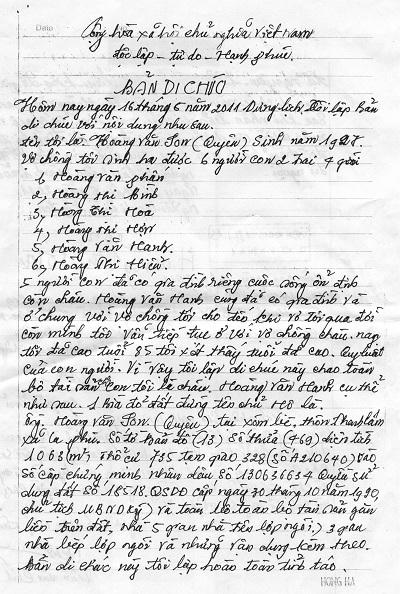 Cộng hòa xã hội chủ nghĩa Việt Nam
độc lập - tự do - Hạnh phúc
BẢN DI CHÚC
Hôm nay ngày 16 tháng 6 năm 2011 Dương lịch. Tôi lập Bản
di chúc với nội dung như sau.
tên tôi là Hoàng Văn Tơn (Quyên) Sinh năm 1927.
Vợ chồng tôi sinh hạ được 6 người con 2 trai 4 gái
1, Hoàng Văn phấn
2, Hoàng thị Bình
3, Hoàng Thị Hoà
4, Hoàng thị Hợn
5, Hoàng Văn Hanh.
6, Hoàng thị Hiếu.
5 người con đã có gia đình riêng cuộc sống ổn định
Còn cháu. Hoàng Văn Hanh cũng đã có gia đình và
ở chung với vợ chồng tôi cho đến khi vợ tôi qua đời
còn mình tôi vẫn tiếp tục ở với vợ chồng cháu. nay
tôi đã cao tuổi 85 tôi xét thấy tuổi đã cao. Quy luật
của con người. Vì vậy tôi lập di chúc này trao toàn
bộ tài sản con tôi là cháu, Hoàng Văn Hanh cụ thể
như sau. 1 Bìa đỏ đất đứng tên chủ hộ là.
ông. Hoàng Văn Tơn. (Quyên) tại xóm bẽ, thôn Thanh
xã la phù. Số tờ Bản đồ (13) Số thửa (469) diện tích
1063 m², thổ cư 735 gian 328 (Số A210640) vào
Số cấp chứng minh nhân dân số 130636634 Quyền sử
dụng đất số 18518. QSDĐ cấp ngày 30 tháng 10 năm 1990,
chủ tịch UBND Ký) và toàn bộ tài sản gắn
liền trên đất, nhà 5 gian nhà trên lợp ngói, 3 gian
nhà bếp lợp ngói và những vận dụng kèm theo.
Bản di chúc này tôi lập hoàn toàn tỉnh táo.
HONG HA